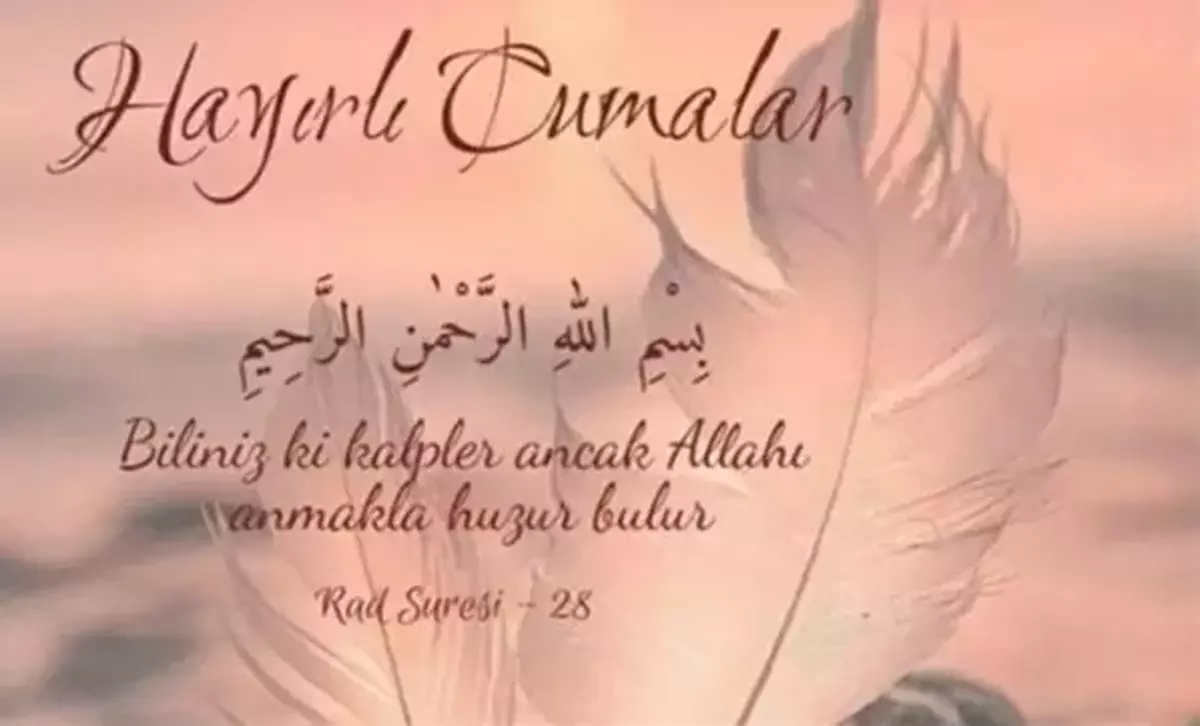 Hayırlı Cumalar
بِسْمِ اللهِ الرَّحْمٰنِ الرَّحِيمِ
Biliniz ki kalpler ancak Allahı
anmakla huzur bulur
Rad Suresi - 28